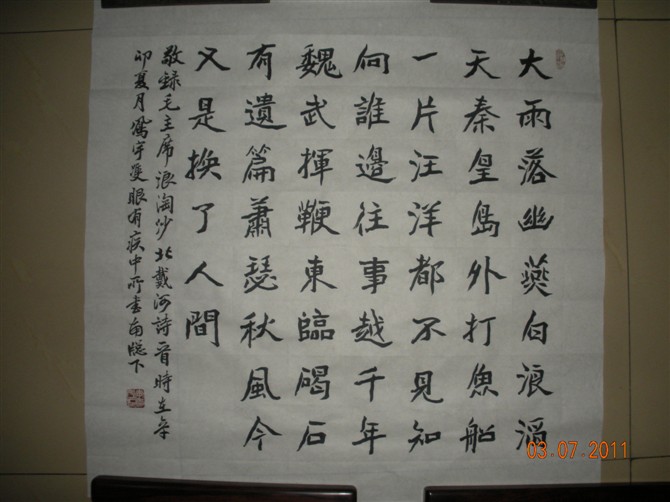 大雨落幽燕白浪滔
天秦皇島外打魚船
一片汪洋都不見知
向誰邊往事越千年
魏武揮鞭東臨碣石
有遺篇蕭瑟秋風今
又是換了人間
敬録毛主席浪淘沙北戴河詩首時在辛
卯夏月宇雙眼有疾中所書南牕下
03.07.2011